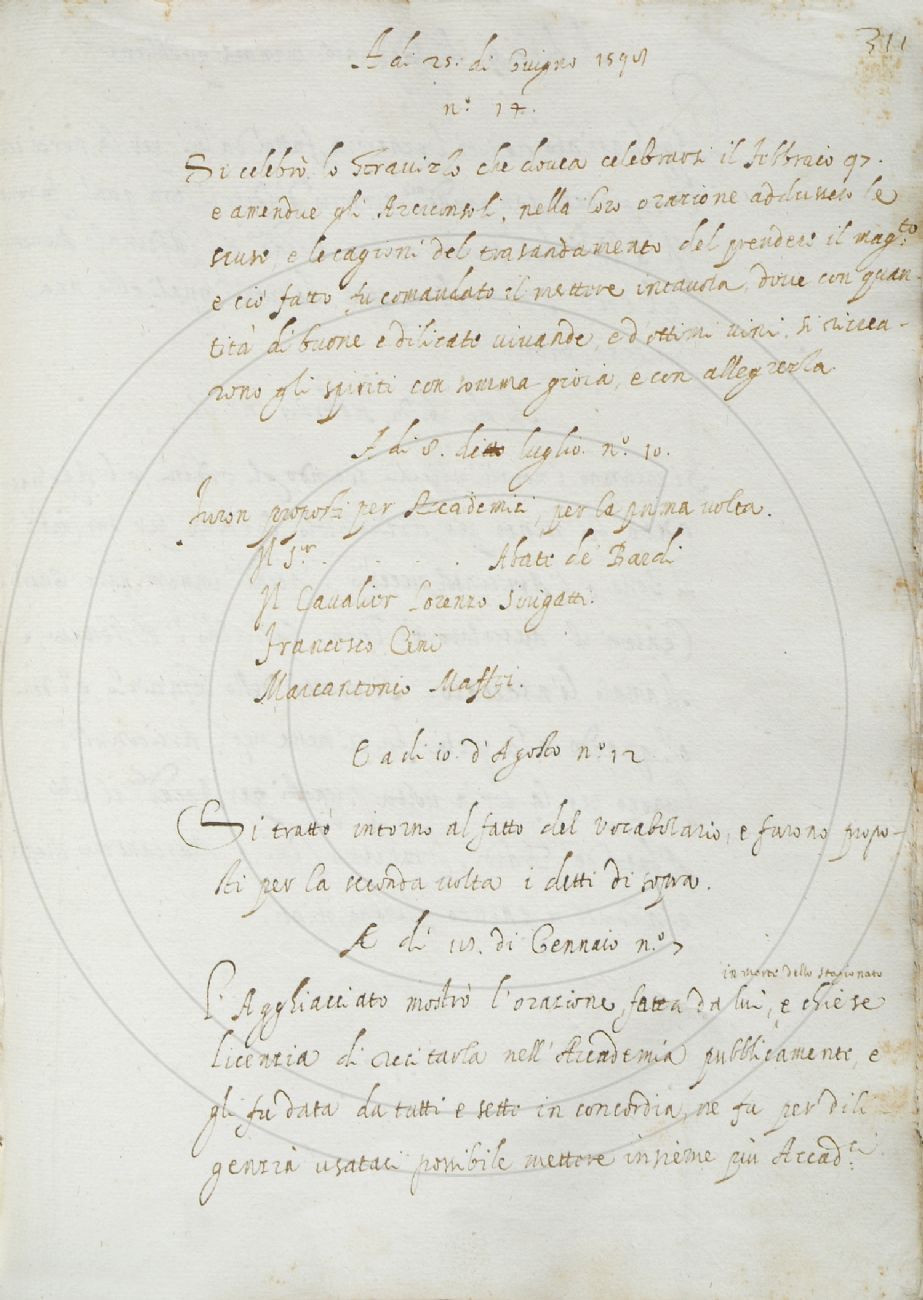 311
A di 25. di Giugno 1598
n.º 17.
Si celebrò lo Stravizzo che dovea celebrarsi il Febbraio 97.
e amendue gli Arciconsoli, nella loro orazione addussero le
scuse, e le cagioni del trasandamento del prendere il mag.to
e ciò fatto fu comandato il mettere in tavola, dove con quan
tità di buone e dilicate vivande, ed ottimi vini, si ricrea-
rono gli spiriti con somma gioia, e con allegrezza.
A di 8. luglio. n.º 10.
Furon proposti per Accademici, per la prima volta.
Il S.r . . . . . Abate de Bardi
Il Cavalier Lorenzo Sirigatti.
Francesco Cini
Marcantonio Maffei.
E a di 10. d'Agosto n.º 12
Si trattò intorno al fatto del vocabolario, e furono propo-
sti per la seconda volta i detti di sopra.
A di di Gennaio n.º 7
in morte dello stagionato
L'Agghiacciato mostrò l'orazione, fatta da lui, e chiese
licenzia di recitarla nell'Accademia pubblicamente, e
gli fu data da tutti e sette in concordia, ne fu per dili
genzia usataci possibile mettere insieme più Accad.ci